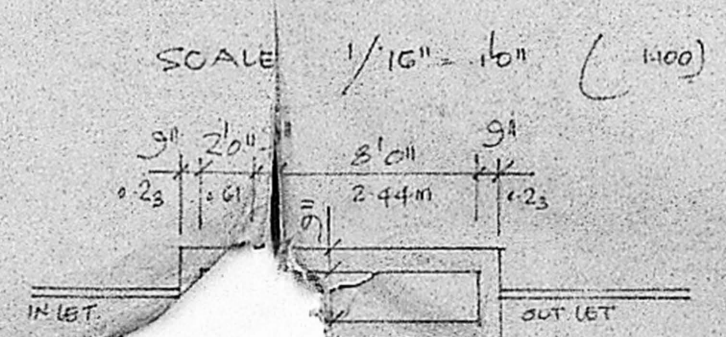 SCALE 1/16" = 1'0" (1:100)
9" 2'0" 8'0" 9"
0.23 .61 2.44m 0.23
9"
INLET OUTLET